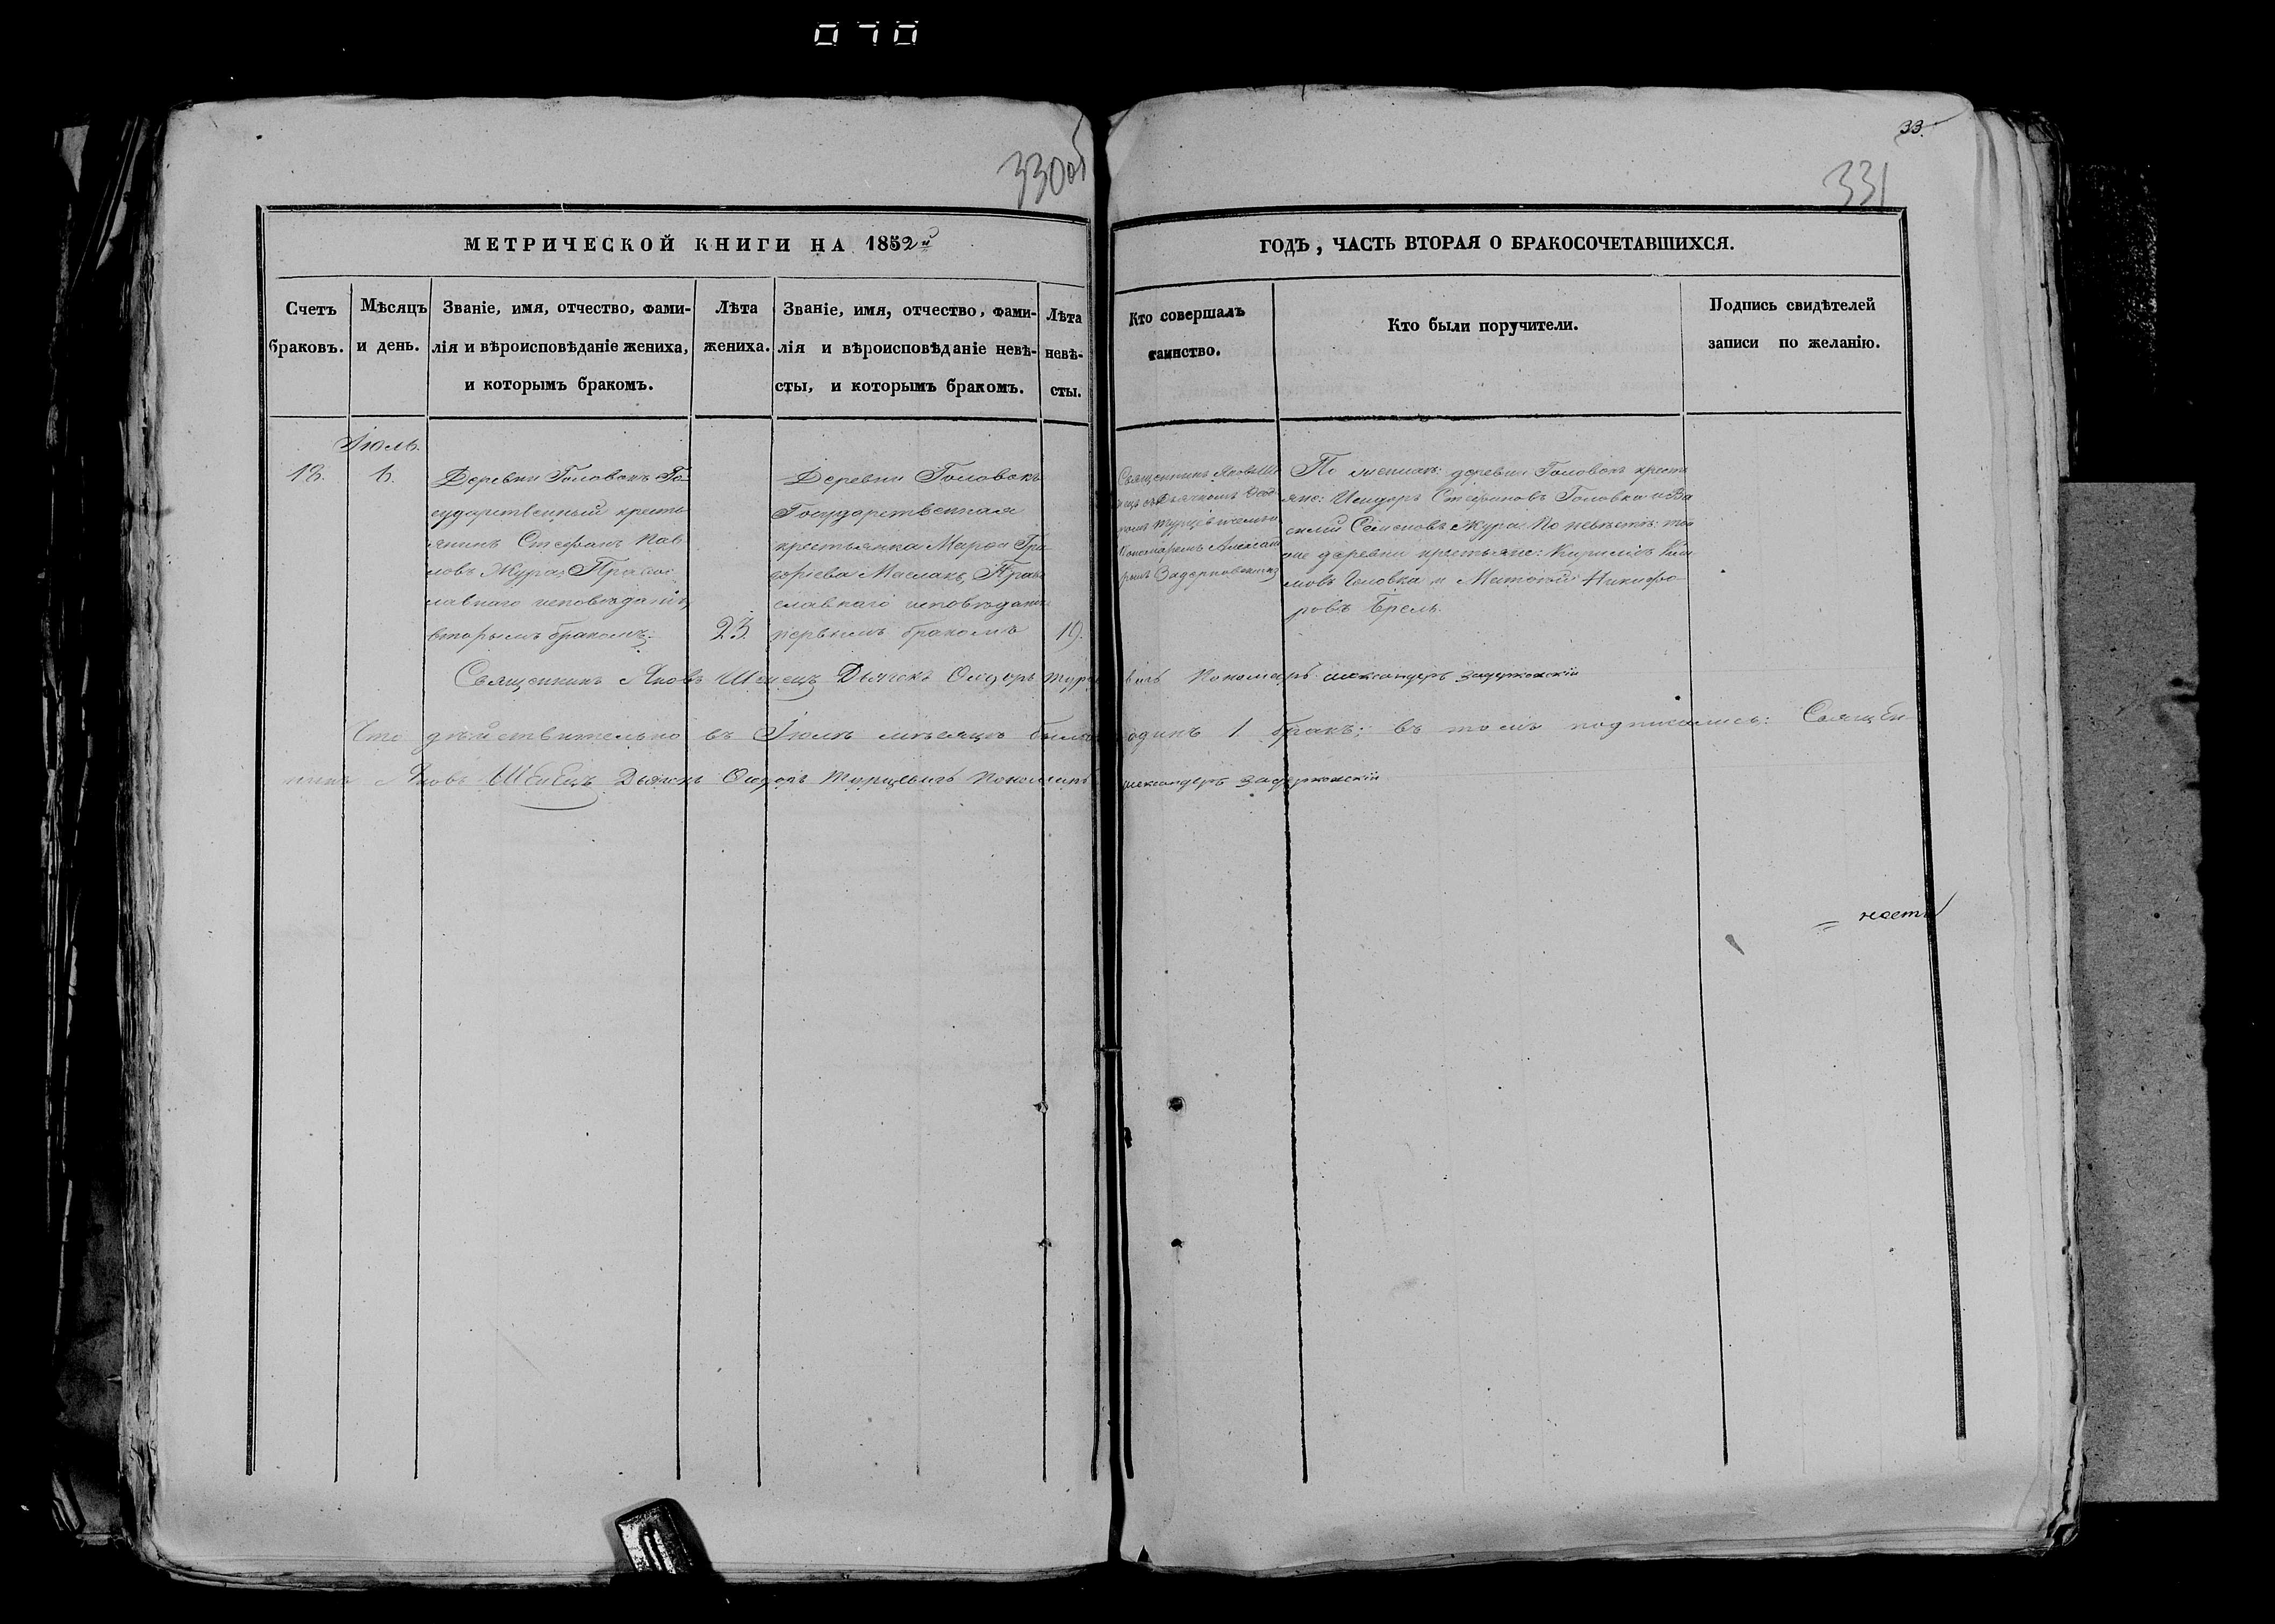 070
33.
330об
331
МЕТРИЧЕСКОЙ КНИГИ НА 1852й
ГОДЪ, ЧАСТЬ ВТОРАЯ О БРАКОСОЧЕТАВШИХСЯ.
Счетъ браковъ.
Мѣсяцъ и день.
Званіе, имя, отчество, фами-
лія и вѣроисповѣданіе жениха,
и которымъ бракомъ.
Лѣта
жениха.
Званіе, имя, отчество, фами-
лія и вѣроисповѣданіе невѣ-
сты, и которымъ бракомъ.
Лѣта
невѣ-
сты.
Кто совершалъ
таинство.
Кто были поручители.
Подпись свидѣтелей
записи по желанію.
Іюль.
18.
Деревни Головокъ Го-
сударственный кресть
янинъ Стефанъ Пав
ловъ Жура, Правос-
лавнаго исповѣданія,
вторымъ бракомъ.
23
Деревни Головокъ
Государственная
крестьянка Марѳа Гри
горьева Маслакъ, Прав
славнаго исповѣданія
первымъ бракомъ
19.
Священникъ Яковъ Ше
Дьячкомъ Ѳеод
Пономаремъ Алексан
Задерковскимъ
По женихѣ: деревни Головокъ кресть
яне: Исидоръ Стефановъ Головка и Ва
силій Семеновъ Жура. По невѣстѣ: той
же деревни крестьяне: Кирилъ
Головка и Матѳей Никифо-
ровъ Брель.
Священникъ Яковъ Дьячекъ Ѳеодоръ Пономарь Александеръ Задерковскій
Что дѣйствительно въ Іюлѣ мѣсяцѣ былъ одинъ 1 бракъ; въ томъ подписались: Священ-
никъ Яковъ Дьячекъ Ѳеодоръ Турцевичъ Пономарь Александеръ Задерковскій